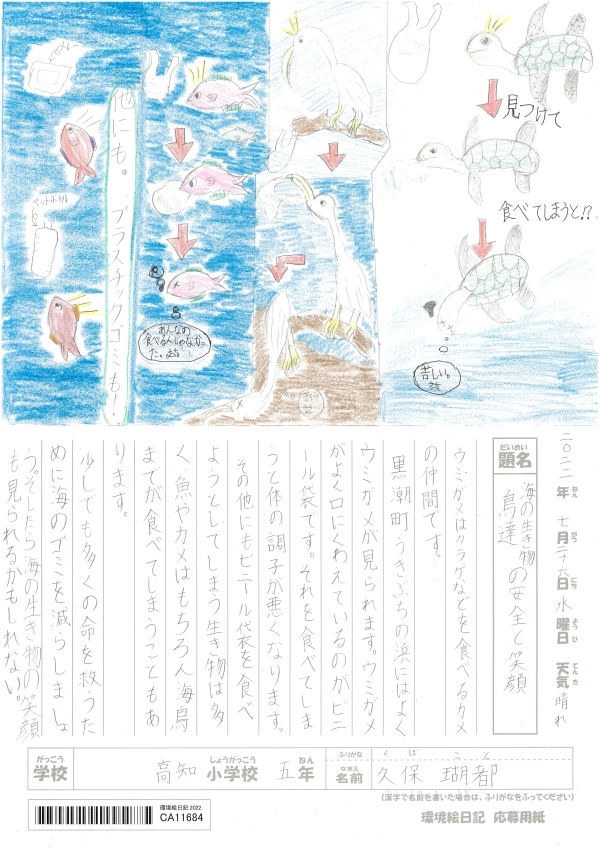 見つけて
食べてしまうと!?
苦しい。
あんなの
食べるんじゃなかっ
た。
他にも。プラスチックゴミも!
ペットボトル
二〇二二年 七月二十六日 水曜日 天気 晴れ
ねん がつ にち ようび てんき
だいめい
題名
海の生き物
鳥達
の安全と笑顔
ウミガメはクラゲなどを食べるカメ
の仲間です。
黒潮町うきぶちの浜にはよく
ウミガメが見られます。ウミガメ
がよく口にくわえているのがビニ
ール袋です。それを食べてしま
うと体の調子が悪くなります。
その他にもビニール袋を食べ
ようとしてしまう生き物は多
く、魚やカメはもちろん海鳥
までが食べてしまうこともあ
ります。
少しでも多くの命を救うた
めに海のゴミを減らしましょ
う。そしたら海の生き物の笑顔
も見られるかもしれない。
がっこう しょうがっこう ねん
学校 高知 小学校 五年
ふりがな くぼ こと
なまえ
名前 久保 瑚都
(漢字で名前を書いた場合は、ふりがなをふってください)
環境絵日記 2022
CA11684
環境絵日記 応募用紙